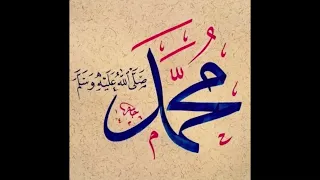 مُحَمَّد
صَلَّى اللهُ عَلَيْهِ وَسَلَّمَ